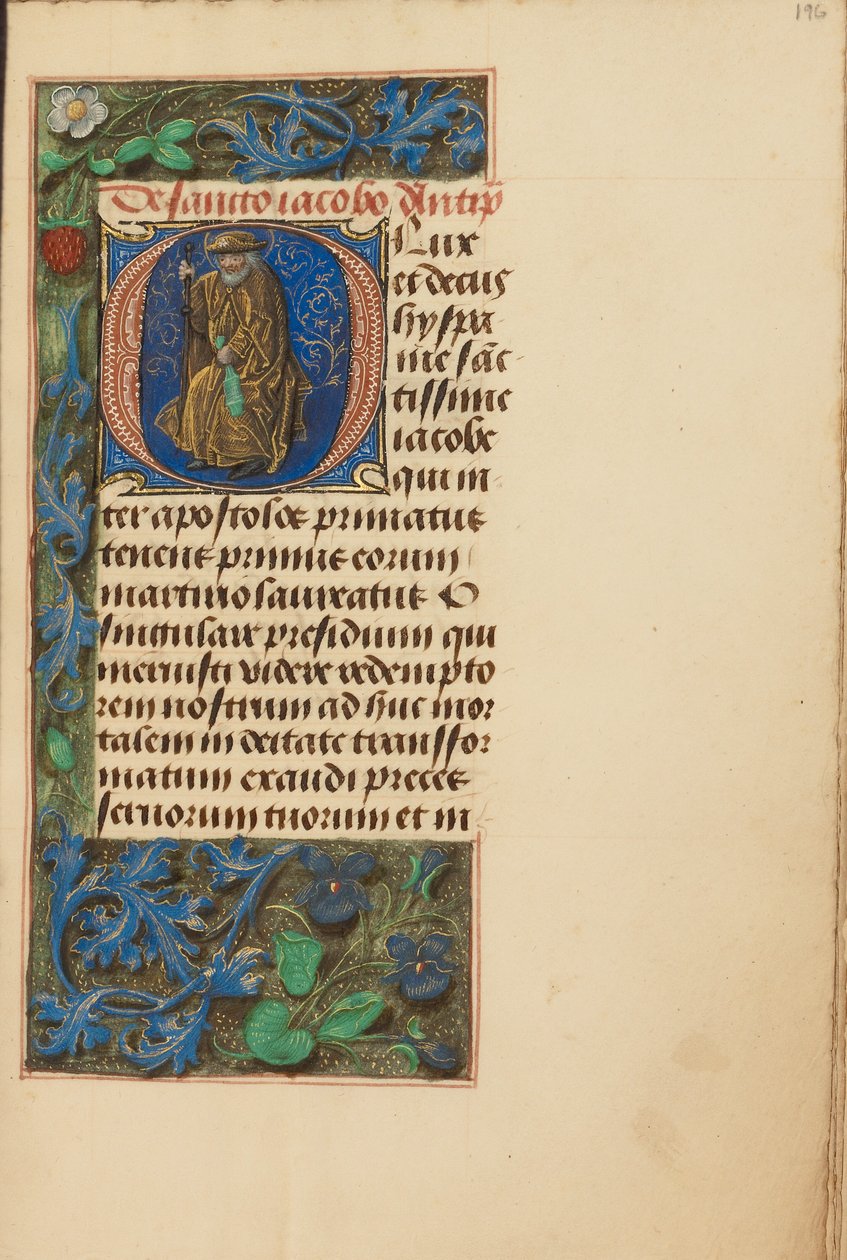 196
De sancto iacobo Antiph̄
O Lux
et decus
hyspa
nie sāc-
tissime
iacobe
qui in-
ter apostolos primatus
tenens primus eorum
martirio laureatus O
singulare presidium qui
meruisti videre redempto
rem nostrum ad huc mor
talem in deitate transfor
matum exaudi preces
seruorum tuorum et in